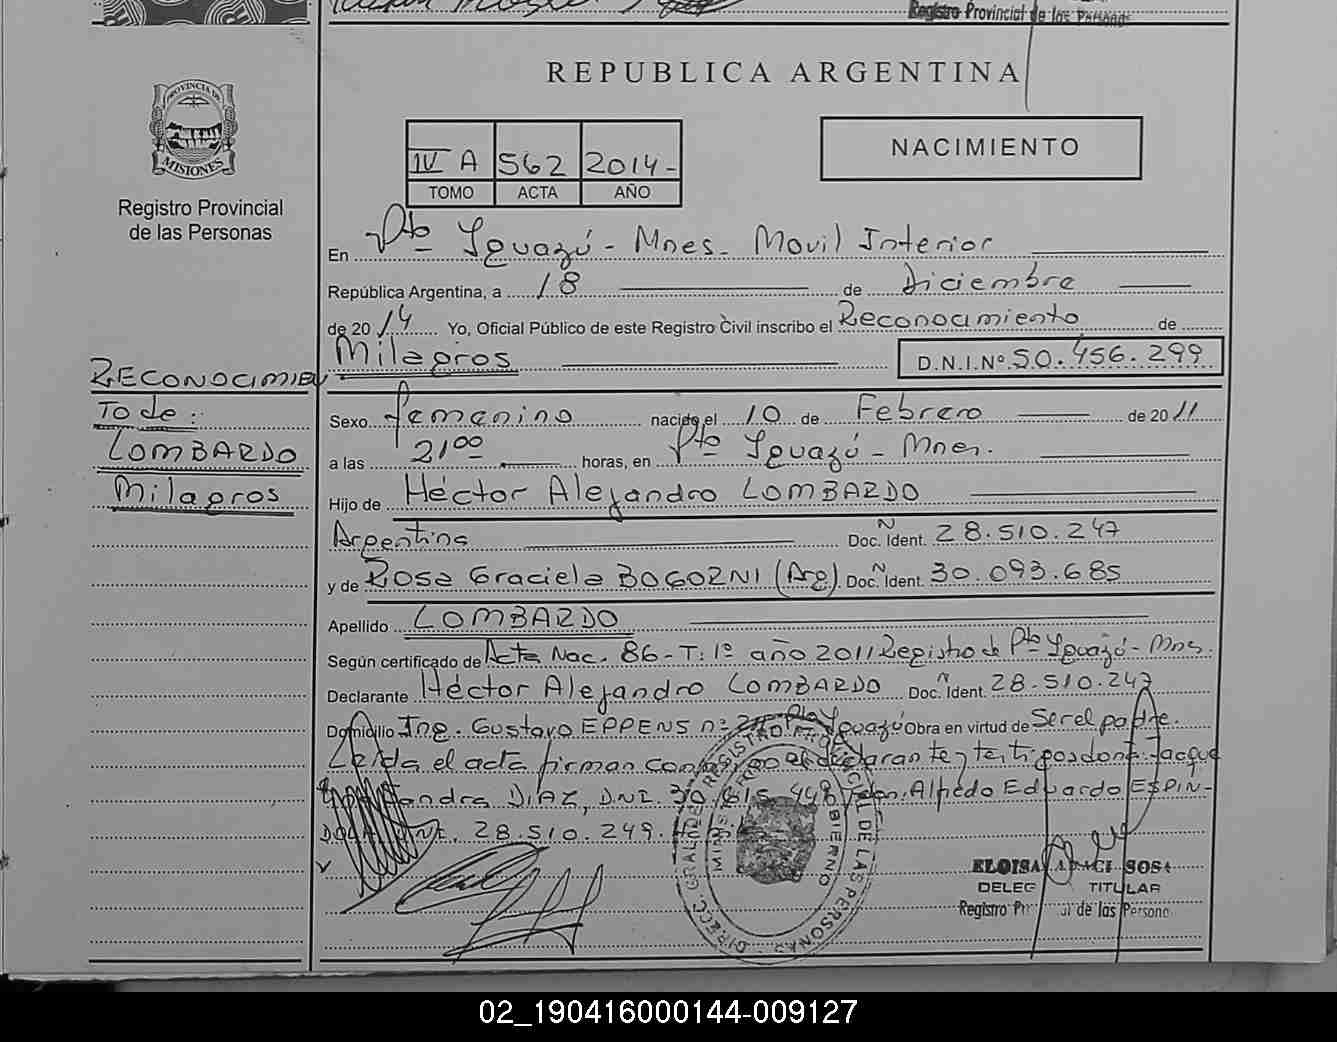 Registro Provincial de las Personas
REPUBLICA ARGENTINA
PROVINCIA DE
MISIONES
Registro Provincial
de las Personas
IV A 562 2014-
TOMO ACTA AÑO
NACIMIENTO
En Pto Iguazú - Mnes. Movil Interior
República Argentina, a 18 de Diciembre
de 2014 Yo, Oficial Público de este Registro Civil inscribo el Reconocimiento de
Milagros D.N.I.Nº 50.456.299
RECONOCIMIEN
To de:
LOMBARDO
Milagros
Sexo femenino nacido el 10 de Febrero de 2011
a las 21 00 horas, en Pto Iguazú - Mnes.
Hijo de Héctor Alejandro LOMBARDO
Argentina Doc. N Ident. 28.510.247
y de Rosa Graciela BOGORNI (Arg) Doc. N Ident. 30.093.685
Apellido LOMBARDO
Según certificado de Acta Nac. 86 - T: 1º año 2011 Registro de Pto Iguazú - Mns.
Declarante Héctor Alejandro LOMBARDO Doc. N Ident. 28.510.247
Domicilio Ing. Gustavo EPPENS nº Pto Iguazú Obra en virtud de Ser el padre.
Leída el acta firman conmigo el declarante y testigos doña Jacque
DIAZ, DNI. 30. 615. 448 y don Alfredo Eduardo ESPIN-
DOLA DNI. 28.510.249.
DIRECC. GRAL. DE REGISTRO PROVINCIAL DE LAS PERSONAS
ELOISA ARACI SOSA
DELEG TITULAR
Registro Pr al de las Persona
02_190416000144-009127